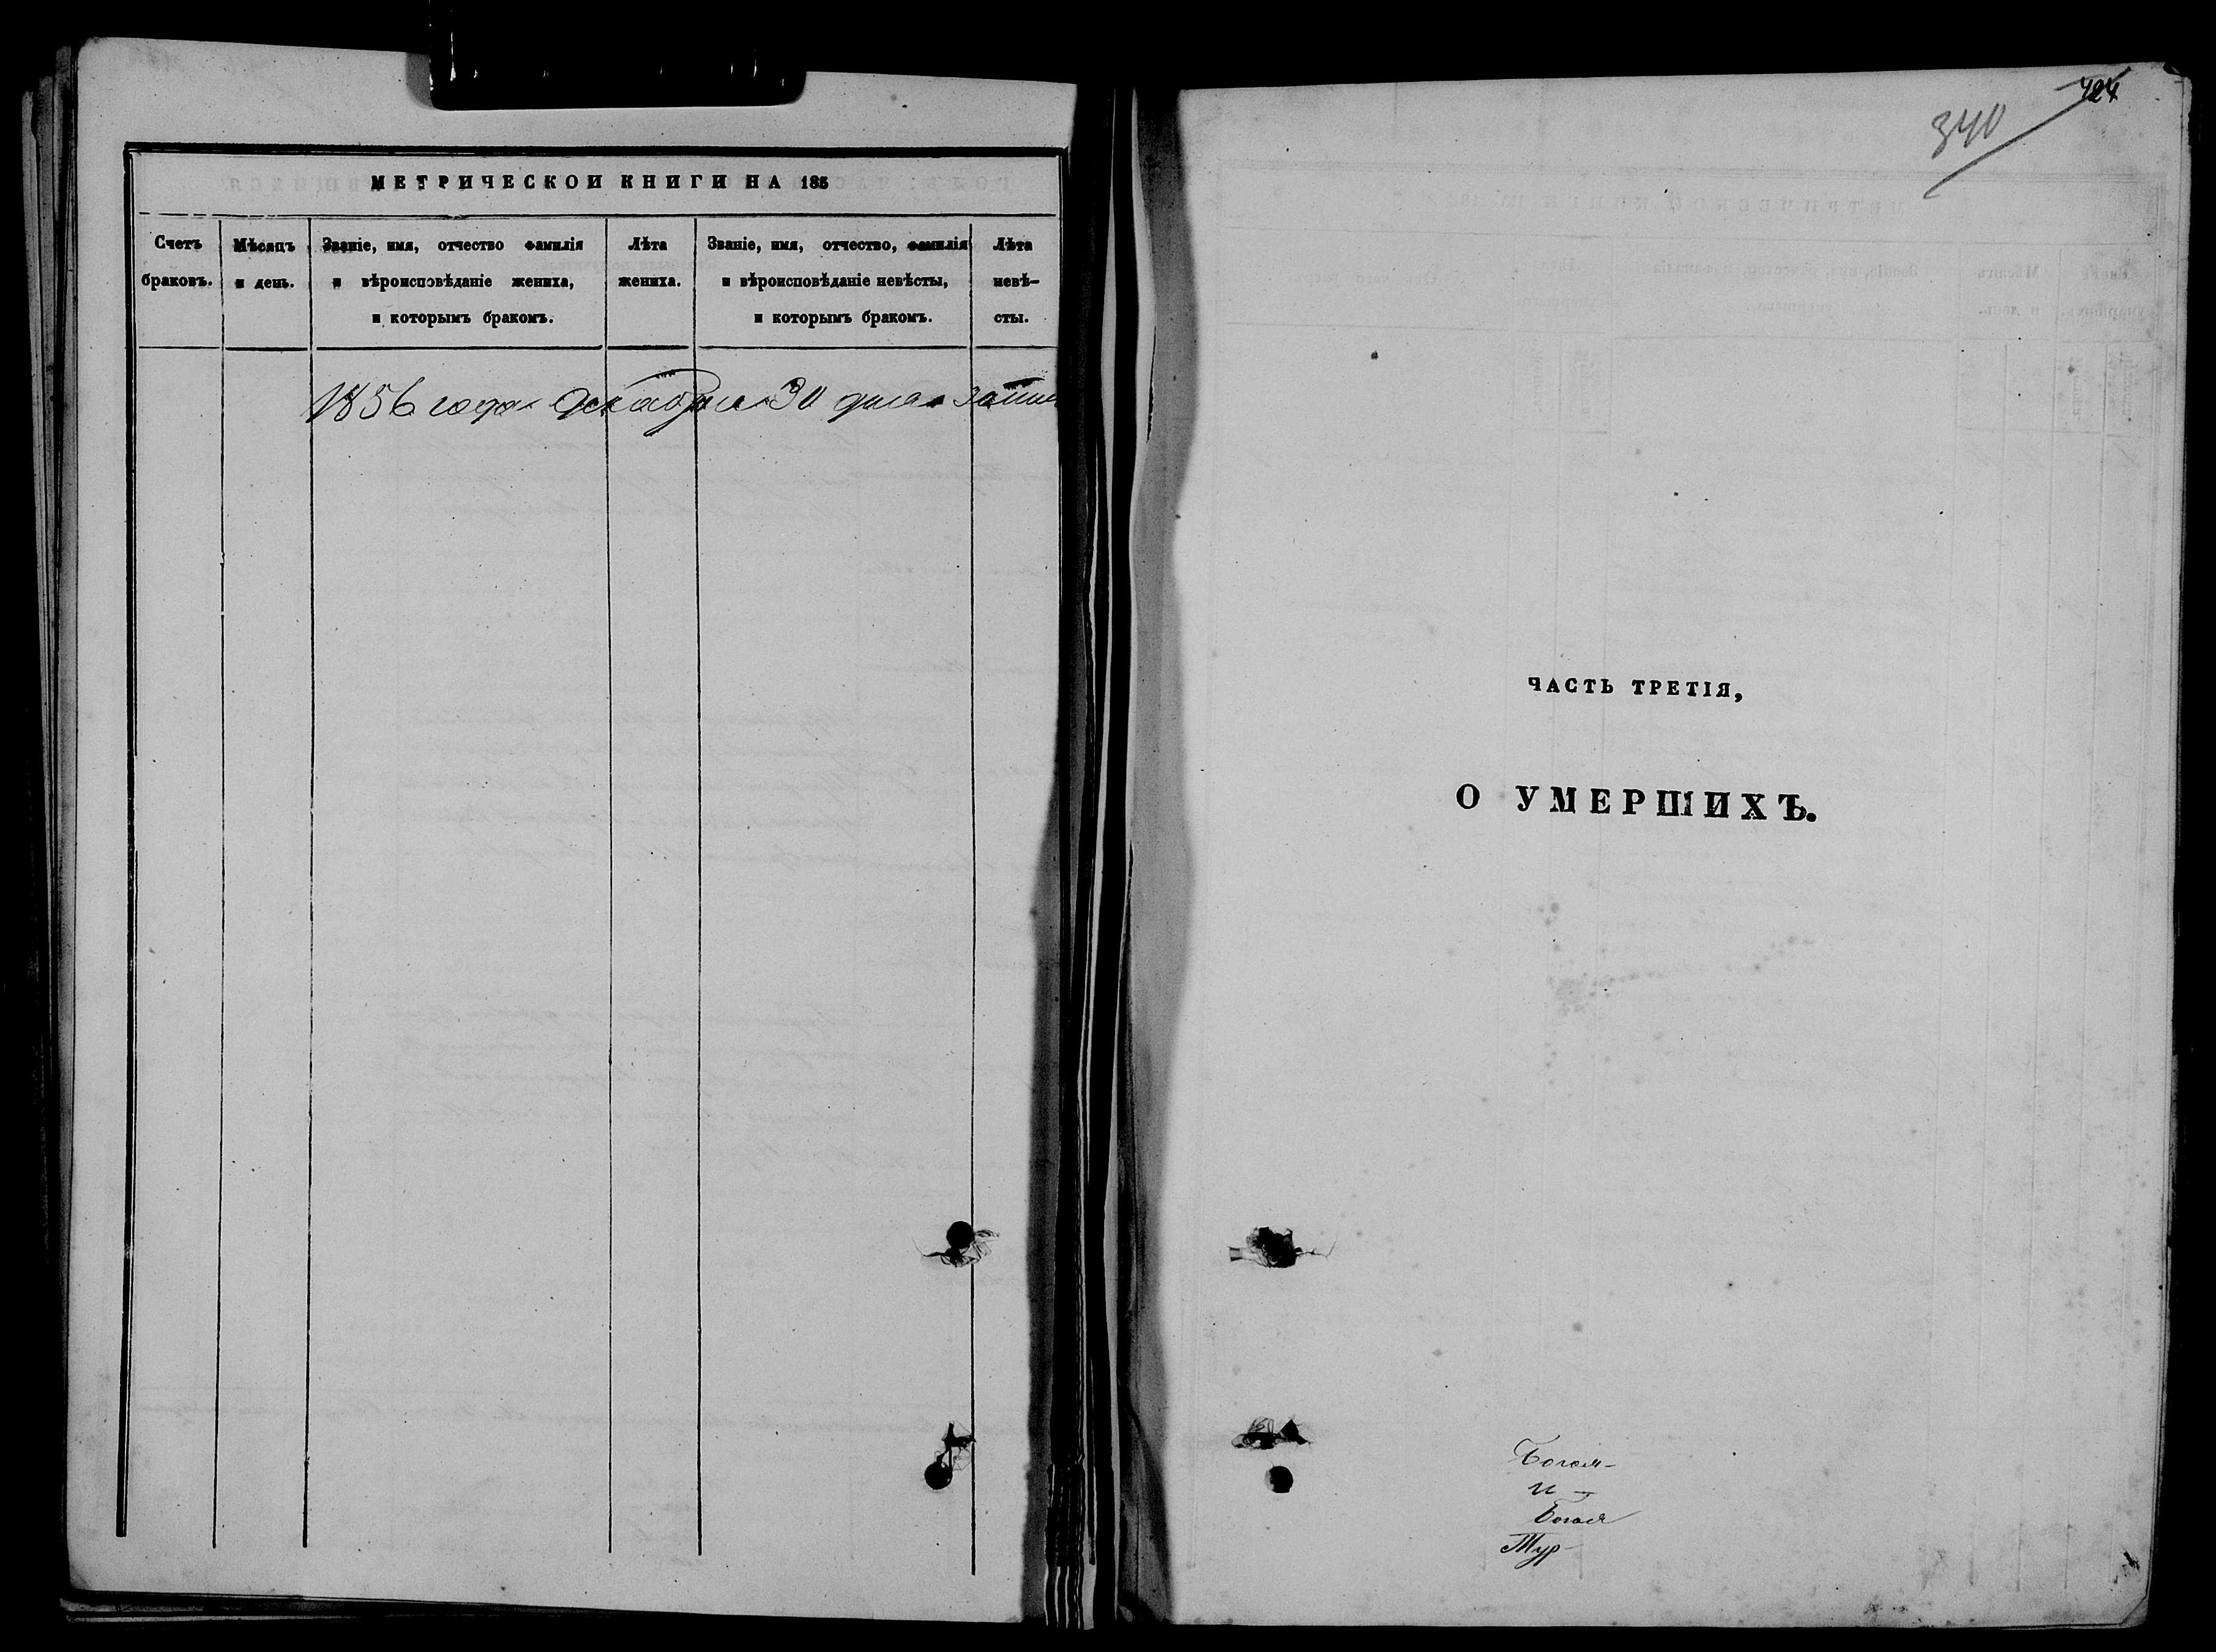 МЕТРИЧЕСКОЙ КНИГИ НА 185
Счетъ браковъ.
Мѣсяцъ и день.
Званіе, имя, отчество фамилія
и вѣроисповѣданіе жениха,
и которымъ бракомъ.
Лѣта
жениха.
Званіе, имя, отчество, фамилія
и вѣроисповѣданіе невѣсты,
и которымъ бракомъ.
Лѣта
невѣ-
сты.
1856 года Декабря 30 дня
424
340
ЧАСТЬ ТРЕТІЯ,
О УМЕРШИХЪ.
Богом-
и -
Богол
Тур-